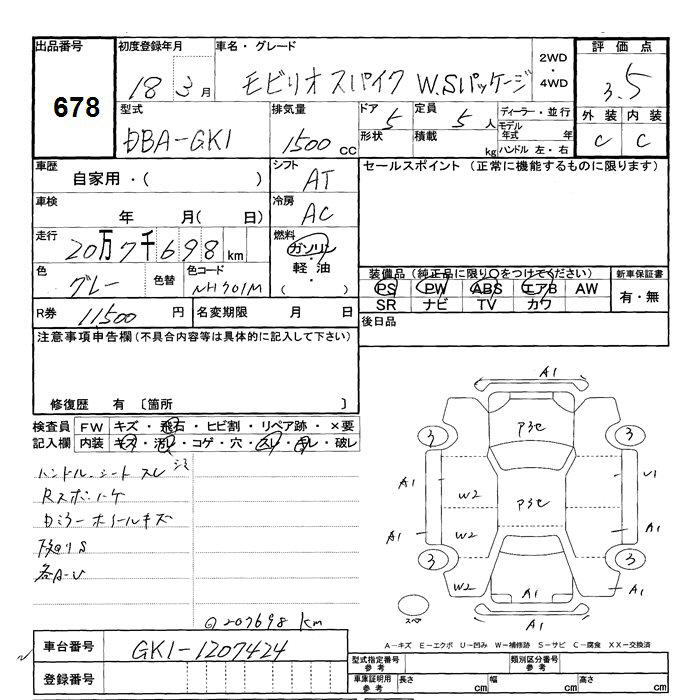 出品番号 初度登録年月 車名・グレード 2WD・4WD 評価点
678 18 3月 モビリオスパイク W.Sパッケージ 3.5
型式 排気量 ドア 5 定員 5人 ディーラー・並行 外装 内装
DBA-GK1 1500cc 形状 積載 kg モデル年式 年 ハンドル 左・右 C C
車歴 シフト セールスポイント (正常に機能するものに限ります)
自家用・( ) AT
車検 冷房
年 月( 日) AC
走行 20万7千698km 燃料 ガソリン・軽油・( )
色 グレー 色替 色コード NH701M
装備品(純正品に限り○をつけてください) 新車保証書
PS PW ABS エアB AW 有・無
SR ナビ TV カワ
R券 11,500円 名変期限 月 日 後日品
注意事項申告欄(不具合内容等は具体的に記入して下さい)
修復歴 有 〔箇所 〕
検査員 FW キズ・飛石・ヒビ割・リペア跡・×要
記入欄 内装 キズ・汚レ・コゲ・穴・スレ・凹レ・破レ
ハンドル、シート スレ シミ
Rスポハゲ
Dミラー ホイールキズ
下廻りS
各A-U
◎207698km
A1
P3C
3 3
A1 U1
W2 P3C
A1 W2 A1
3 3
W2 A1 A1
スペア A1
A-キズ E-エクボ U-凹み W-補修跡 S-サビ C-腐食 XX-交換済
車台番号 GK1-1207424
登録番号
型式指定番号 参考 類別区分番号 参考
車庫証明用 参考 長さ cm 幅 cm 高さ cm